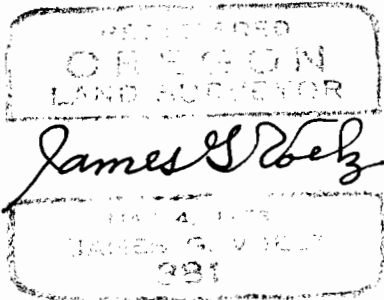 REGISTERED
OREGON
LAND SURVEYOR
James G Voelz
JAMES G.
991